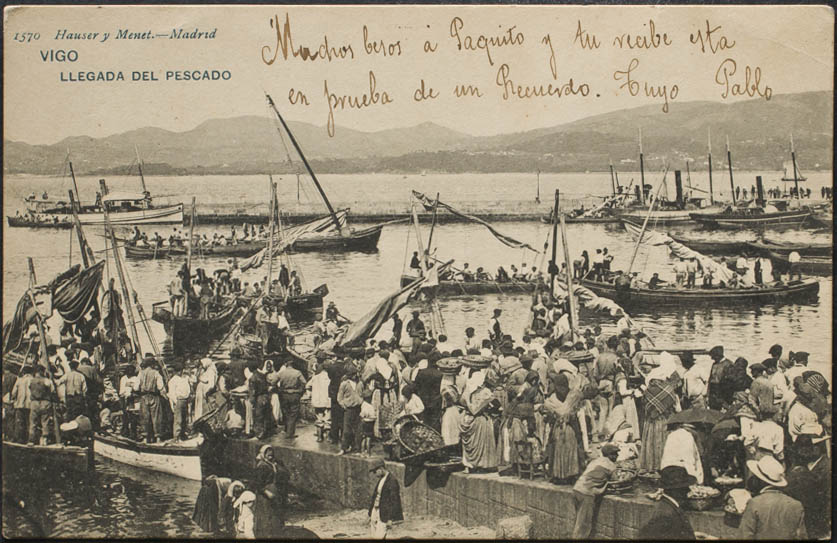 1570 Hauser y Menet.—Madrid
VIGO
LLEGADA DEL PESCADO
Muchos besos á Paquito y tu recibe esta
en prueba de un Recuerdo. Tuyo Pablo